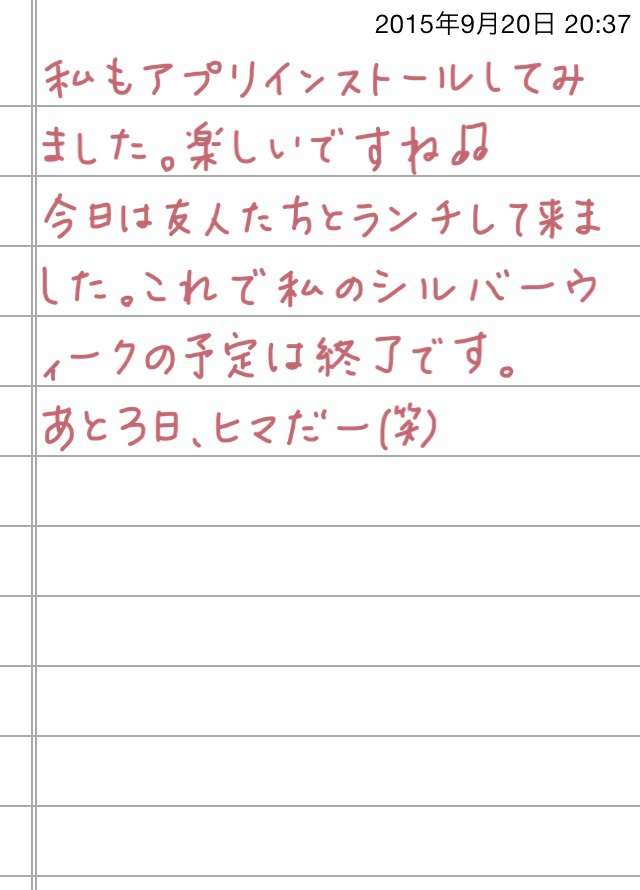 2015年9月20日 20:37
私もアプリインストールしてみ
ました。楽しいですね♫
今日は友人たちとランチして来ま
した。これで私のシルバーウ
ィークの予定は終了です。
あと3日、ヒマだー(笑)